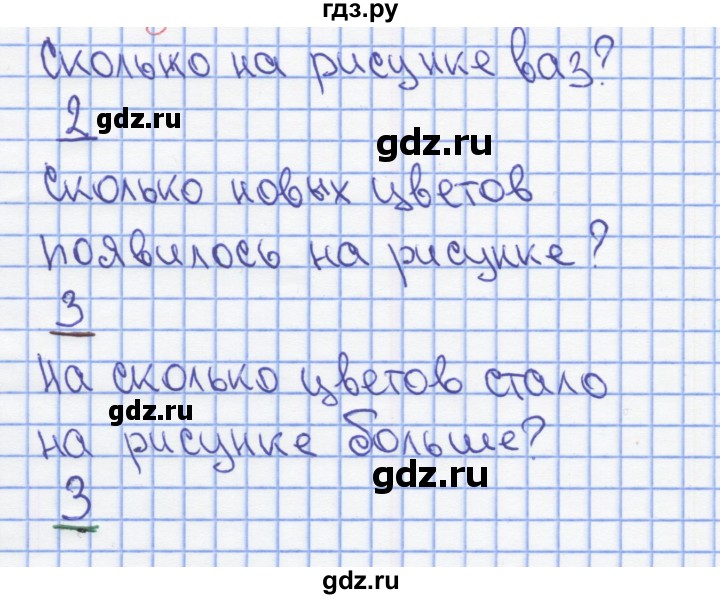 гдз.ру
Сколько на рисунке ваз?
2 gdz.ru
gdz.ru
Сколько новых цветов
появилось на рисунке?
3
На сколько цветов стало
gdz.ru
на рисунке больше?
gdz.ru
3
gdz.ru